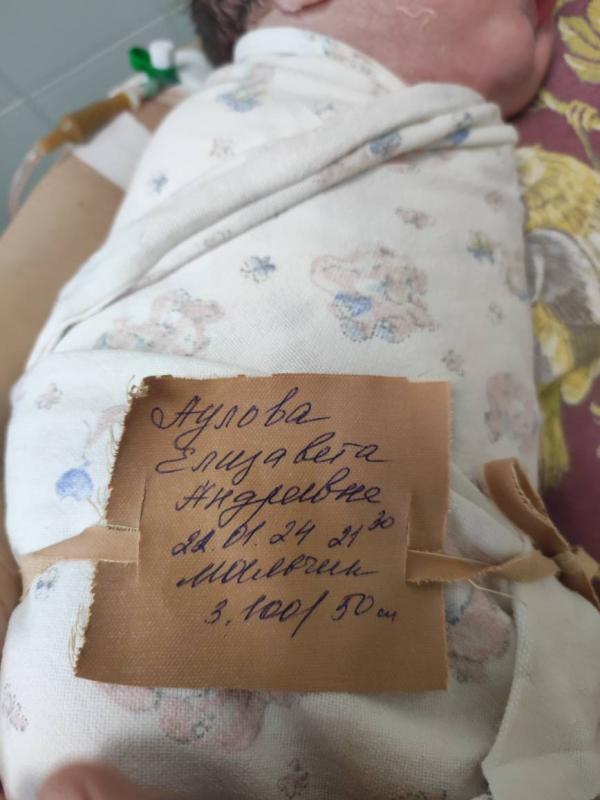 Аулова
Елизавета
Андреевна
22.01.24 21 30
Мальчик
3.100/50 см